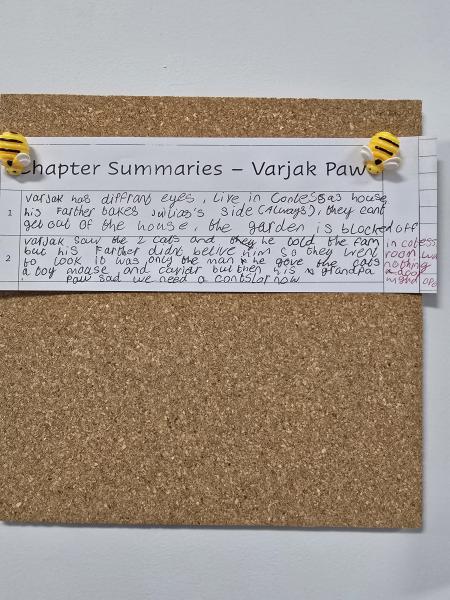 Chapter Summaries – Varjak Paw
1
varjak has diffrant eyes, live in Contessas house,
his Farther takes Julias's side (Always), they cant
get out of the house, the garden is blocked off
2
varjak saw the 2 cats and they he told the fam
but his Farther didnt belive him so they went
to look it was only the man he gave the cats
a toy mouse and caviar but then his grandpa
Paw sad we need a now
in
room
nothing
a